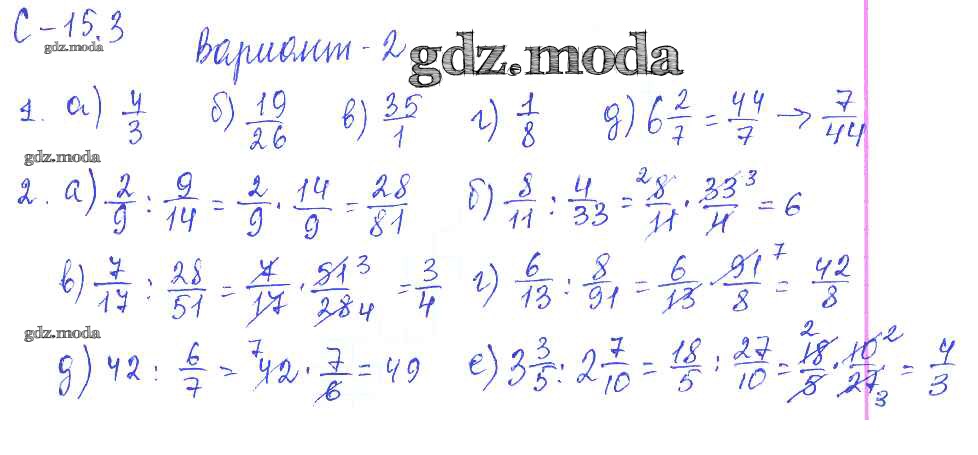 С-15.3
gdz.moda
Вариант-2 gdz.moda
1. а) 4/3 б) 19/26 в) 35/1 г) 1/8 д) 6 2/7 = 44/7 → 7/44
gdz.moda
2. а) 2/9 : 9/14 = 2/9 · 14/9 = 28/81 б) 8/11 : 4/33 = 2 8/11 · 33/4 3 = 6
в) 7/17 : 28/51 = 7/17 · 51/28 3 4 = 3/4 г) 6/13 : 8/91 = 6/13 · 91/8 7 = 42/8
gdz.moda
д) 42 : 6/7 = 7 42 · 7/6 = 49 е) 3 3/5 : 2 7/10 = 18/5 : 27/10 = 2 18/5 · 10/27 2 3 = 4/3